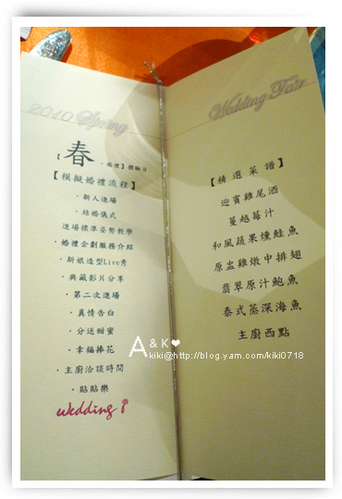 2010 Spring
【春 ‧婚禮】體驗日
【模擬婚禮流程】
‧新人進場
‧結婚儀式
進場標準姿勢教學
‧婚禮企劃服務介紹
‧新娘造型Live秀
‧典藏影片分享
‧第二次進場
‧真情告白
‧分送甜蜜
‧幸福捧花
‧主廚洽談時間
‧貼貼樂
wedding
Wedding Fair
【精選菜譜】
迎賓雞尾酒
蔓越莓汁
和風蔬果燻鮭魚
原盅雞燉中排翅
翡翠原汁鮑魚
泰式蒸深海魚
主廚西點
A & K
Akiki@http://blog.yam.com/kiki0718